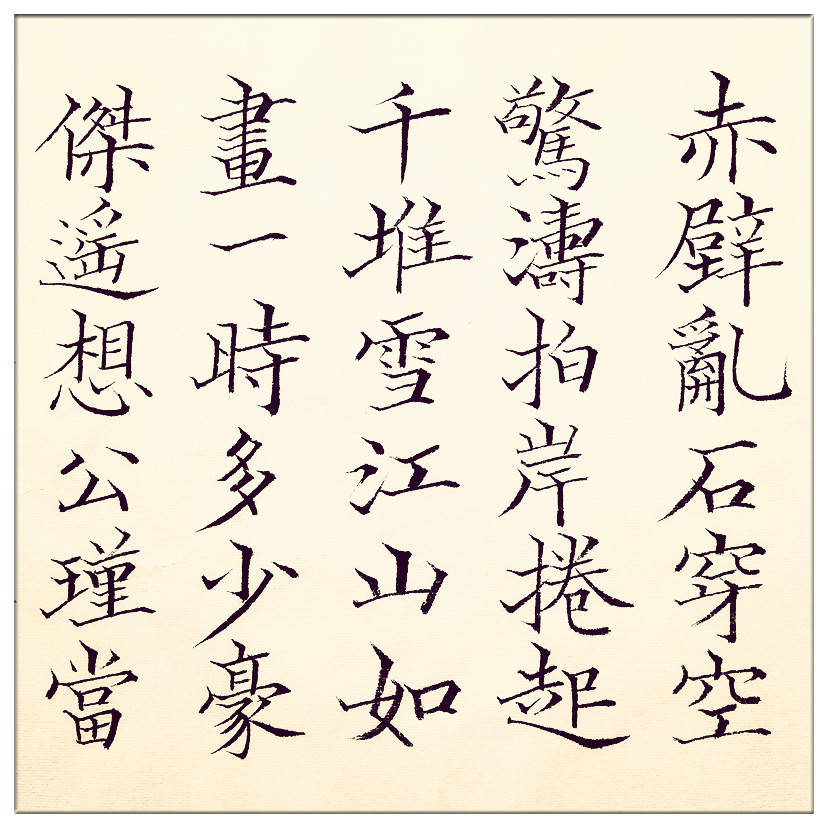 赤壁亂石穿空
驚濤拍岸捲起
千堆雪江山如
畫一時多少豪
傑遙想公瑾當